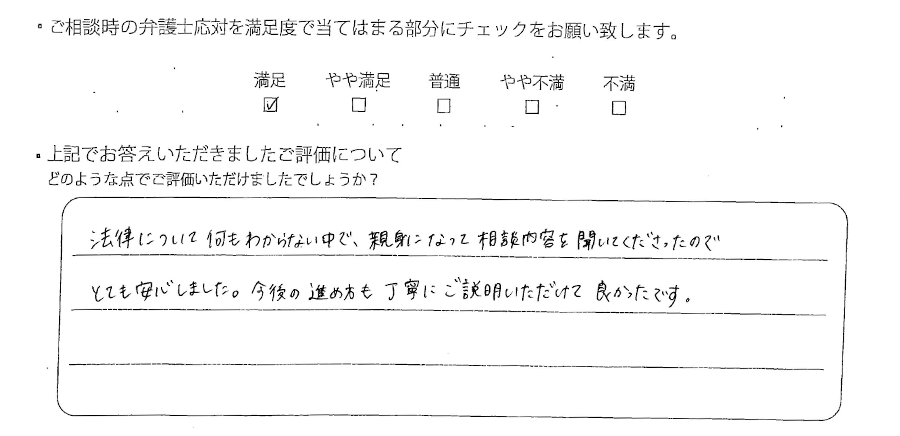 ・ご相談時の弁護士応対を満足度で当てはまる部分にチェックをお願い致します。
満足 やや満足 普通 やや不満 不満
☑ ☐ ☐ ☐ ☐
・上記でお答えいただきましたご評価について
どのような点でご評価いただけましたでしょうか？
法律について何もわからない中で、親身になって相談内容を聞いてくださったので
とても安心しました。今後の進め方も丁寧にご説明いただけて良かったです。